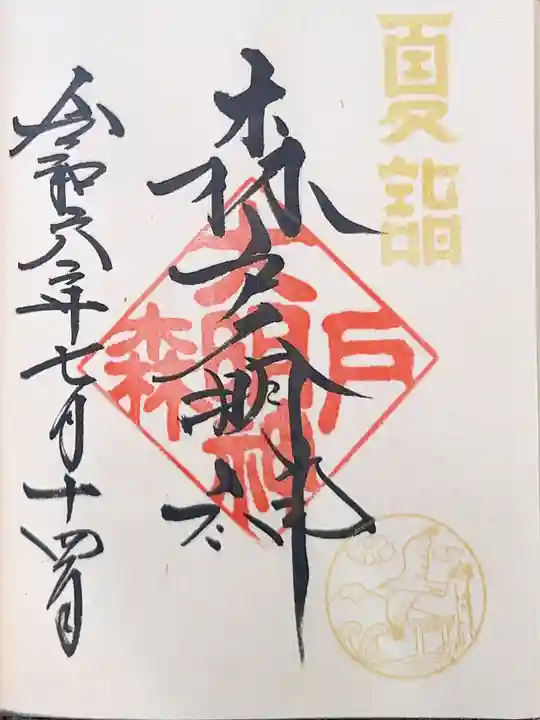 夏詣
森戸大明神
森戸大明神
令和六年七月十四日